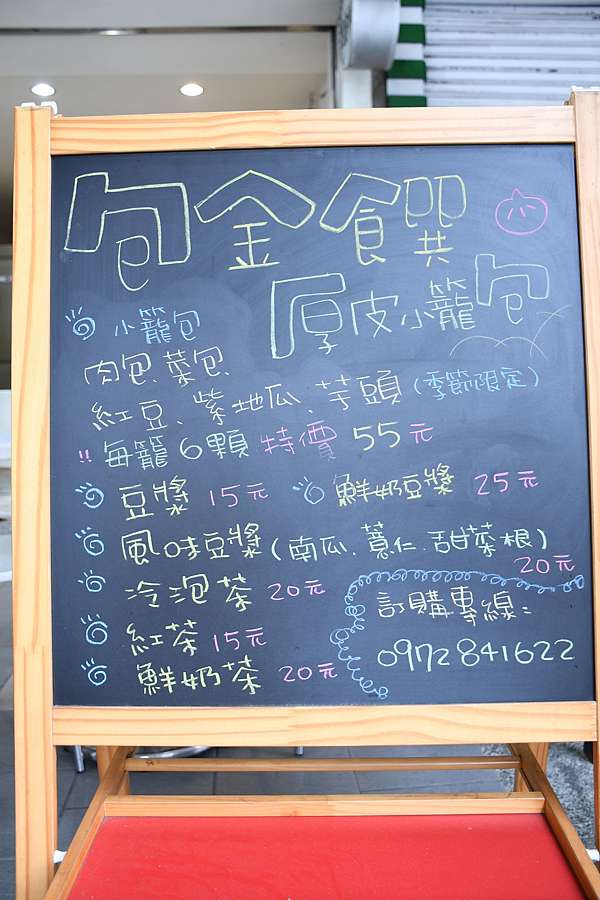 包金饌
厚皮小籠包
小籠包
肉包、菜包、
紅豆、紫地瓜、芋頭(季節限定)
!! 每籠6顆 特價 55元
豆漿 15元 鮮奶豆漿 25元
風味豆漿(南瓜.薏仁.甜菜根)
20元
冷泡茶 20元
訂購專線:
0972841622
紅茶 15元
鮮奶茶 20元